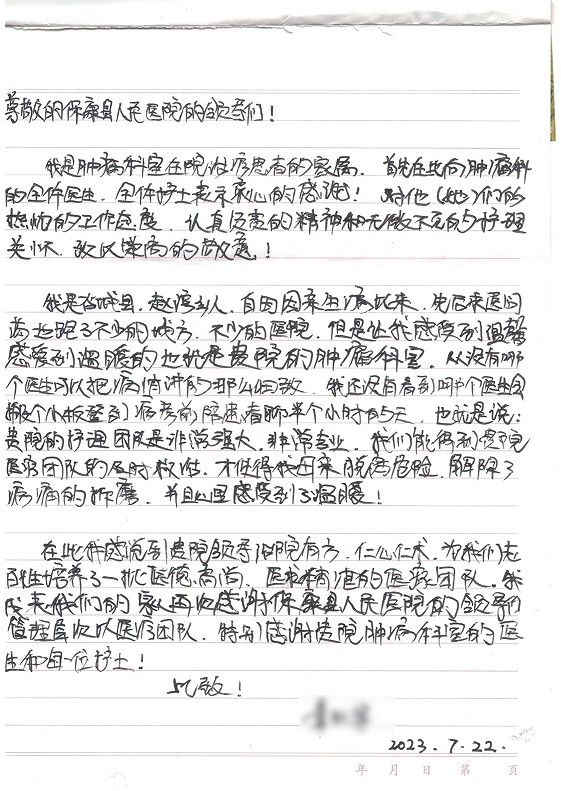 尊敬的保康县人民医院的领导们！
我是肿瘤科室住院治病患者的家属。首先在此向肿瘤科
的全体医生、全体护士表示衷心的感谢！对他（她）们的
热忱的工作态度、认真负责的精神和无微不至的护理
关怀、致以崇高的敬意！
我是谷城县、赵湾乡人、自从因亲生病以来、先后求医问
药也跑了不少的地方、不少的医院、但是让我感受到温馨
感受到温暖的也就是贵院的肿瘤科室、从没有哪
个医生可以把病情讲的那么细致、我还没有看到哪个医生会
搬个小板凳到病房前陪患者聊半个小时的天、也就是说：
贵院的护理团队是非常强大、非常专业、我们能得到贵院
医疗团队的及时救治、才使得我因亲脱离危险、解除了
病痛的折磨、并且心里感受到了温暖！
在此我感觉到贵院领导治院有方、仁心仁术、为我们老
百姓培养了一批医德高尚、医术精湛的医疗团队。我
代表我们的家人再次感谢保康县人民医院的领导们
管理层次以医疗团队、特别感谢贵院肿瘤科室的医
生和每一位护士！
此致！
2023.7.22.
年 月 日 第 页